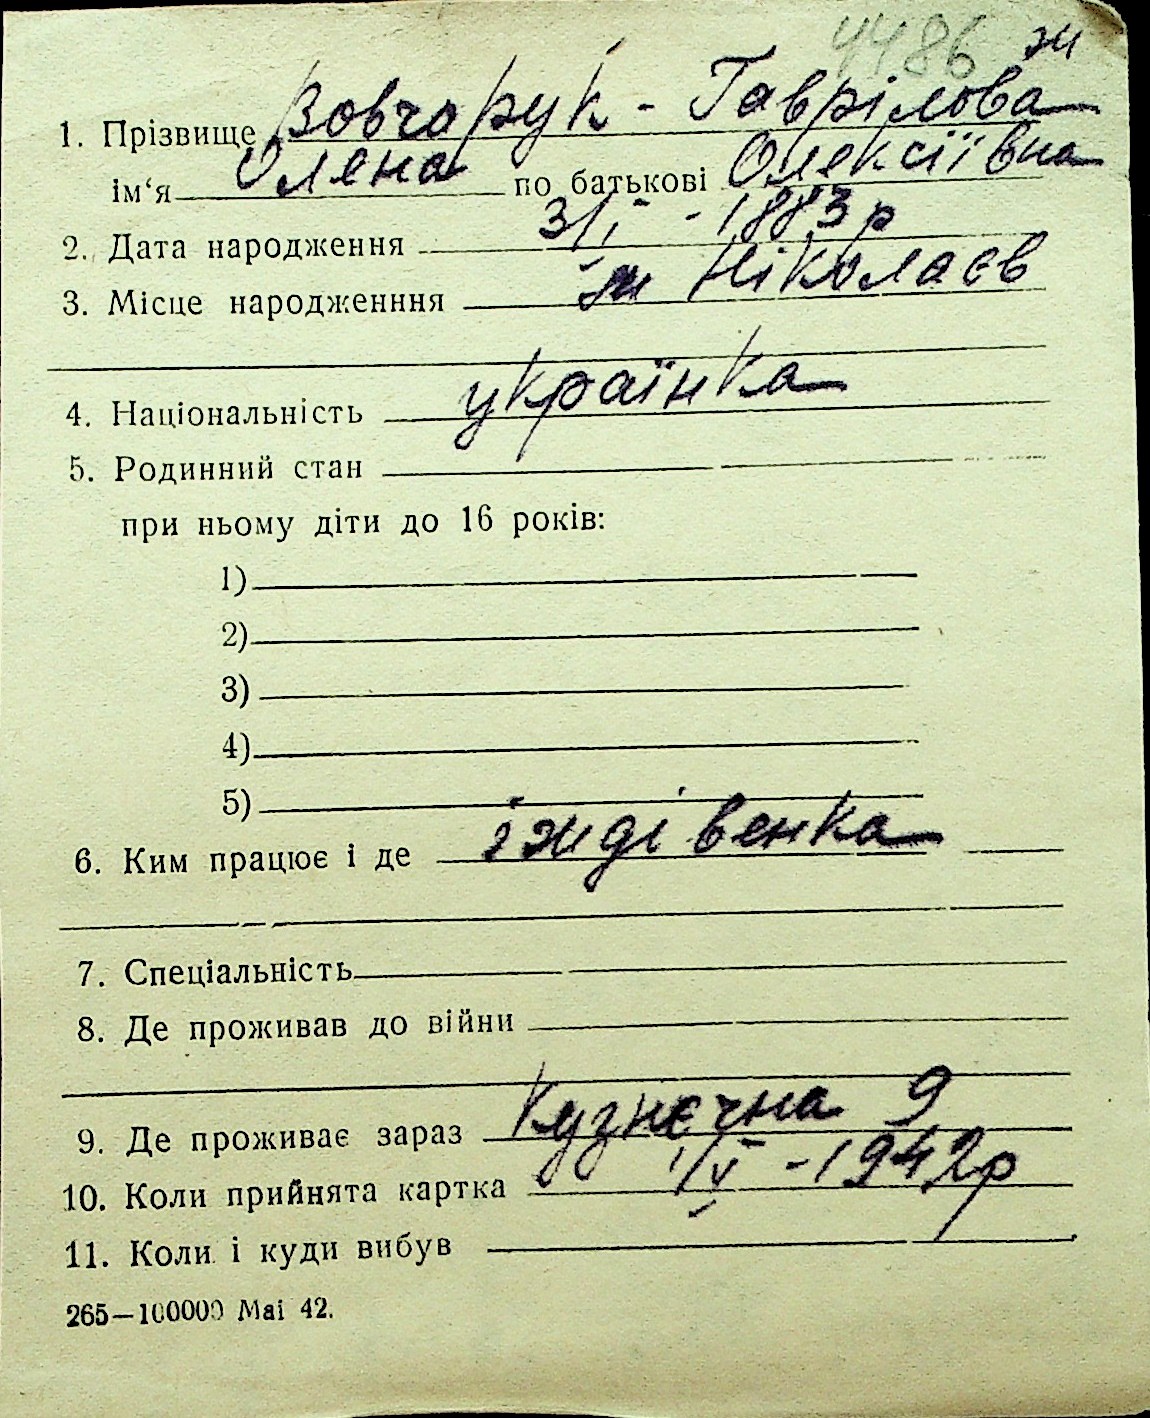 4486 ж
1. Прізвище Вовчарук - Гаврілова
ім‘я Олена по батькові Олексіївна
2. Дата народження 3/I - 1883 р
3. Місце народженння м Ніколаєв
4. Національність українка
5. Родинний стан
при ньому діти до 16 років:
1)
2)
3)
4)
5)
6. Ким працює і де іждівенка
7. Спеціальність
8. Де проживав до війни
9. Де проживає зараз Кузнєчна 9
10. Коли прийнята картка 1/V - 1942р
11. Коли і куди вибув
265—100000 Маі 42.